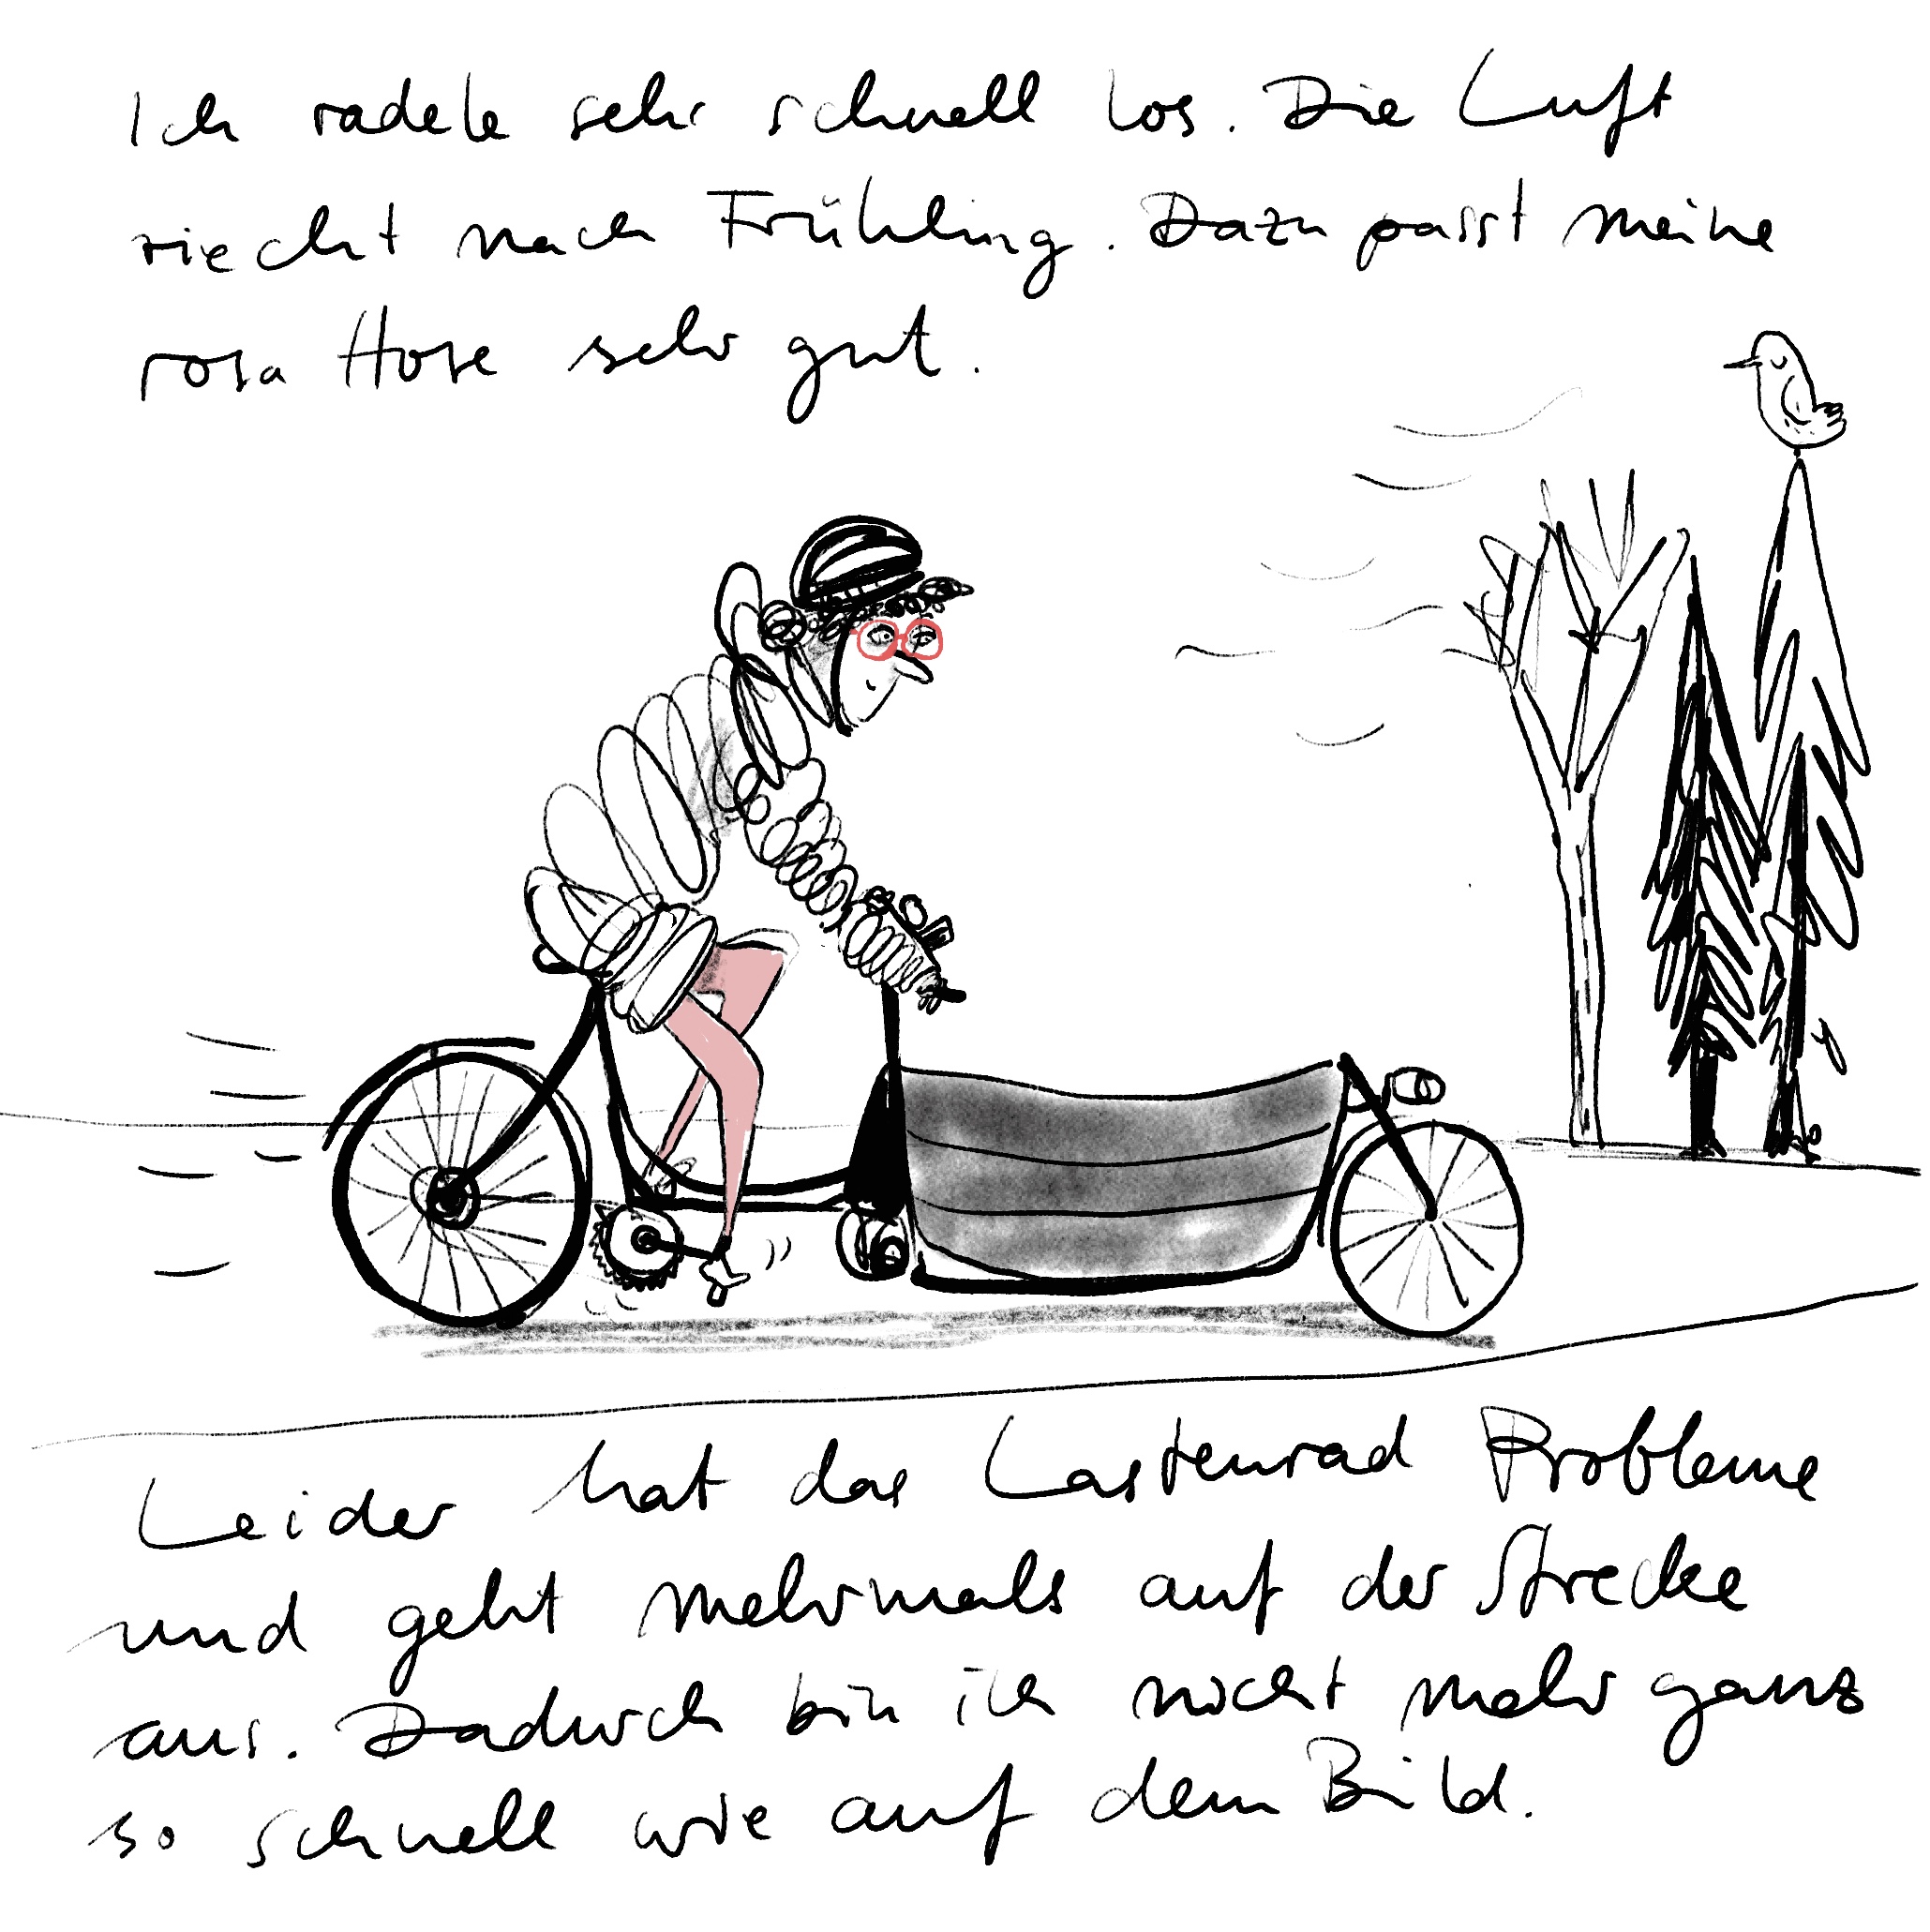 Ich radele sehr schnell los. Die Luft
riecht nach Frühling. Dazu passt meine
rosa Hose sehr gut.
Leider hat das Lastenrad Probleme
und geht mehrmals auf der Strecke
aus. Dadurch bin ich nicht mehr ganz
so schnell wie auf dem Bild.